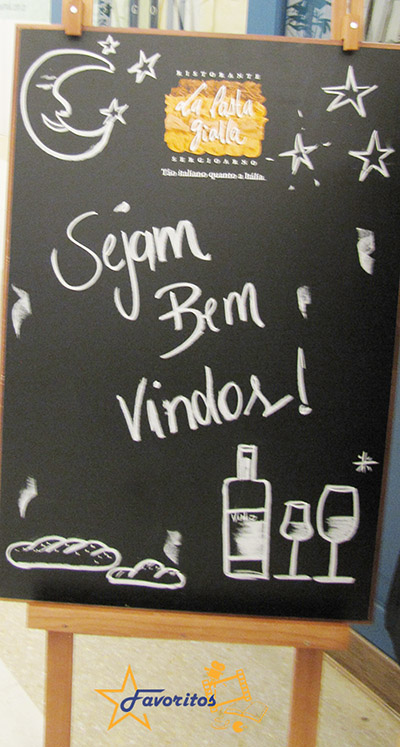 RISTORANTE
La Pasta
gialla
SERGIO ARNO
Tão italiano quanto a Itália.
Sejam
Bem
Vindos!
Favoritos